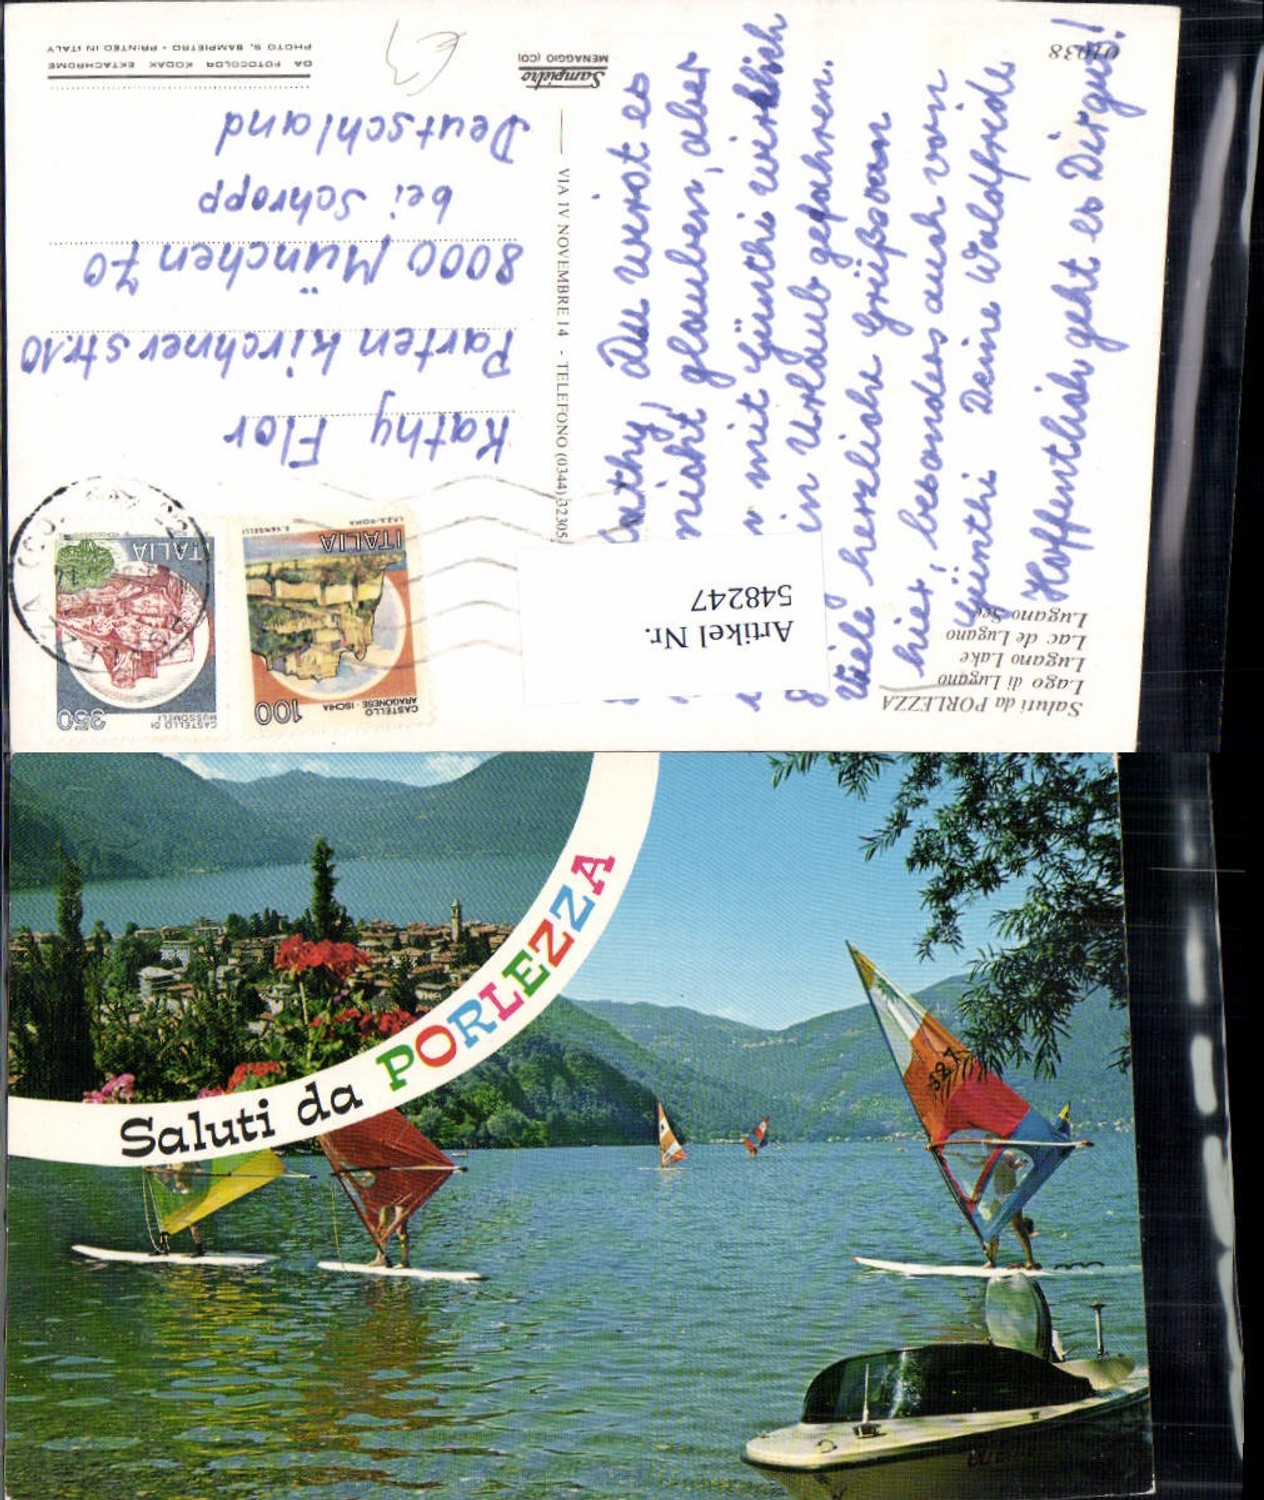 Saluti da PORLEZZA
Lago di Lugano
Lugano Lake
Lac de Lugano
Lugano See
01038
Sampietro
MENAGGIO (CO)
VIA IV NOVEMBRE 14 - TELEFONO (0344) 32305
DA FOTOCOLOR KODAK EKTACHROME
PHOTO S. SAMPIETRO - PRINTED IN ITALY
athy, Du wirst es
nicht glauben, aber
mit Günthi wirklich
in Urlaub gefahren.
Viele herzliche Grüße von
hier, besonders auch von
Günthi Deine Waldfride
Hoffentlich geht es Dir gut!
Kathy Flor
Partenkirchner str. 10
8000 München 70
bei Schropp
Deutschland
CASTELLO DI
MUSSOMELI
350
ITALIA
CASTELLO
ARAGONESE - ISCHIA
100
ITALIA
I.P.Z.S.-ROMA
E. VANGELLI
Artikel Nr.
548247
Saluti da PORLEZZA